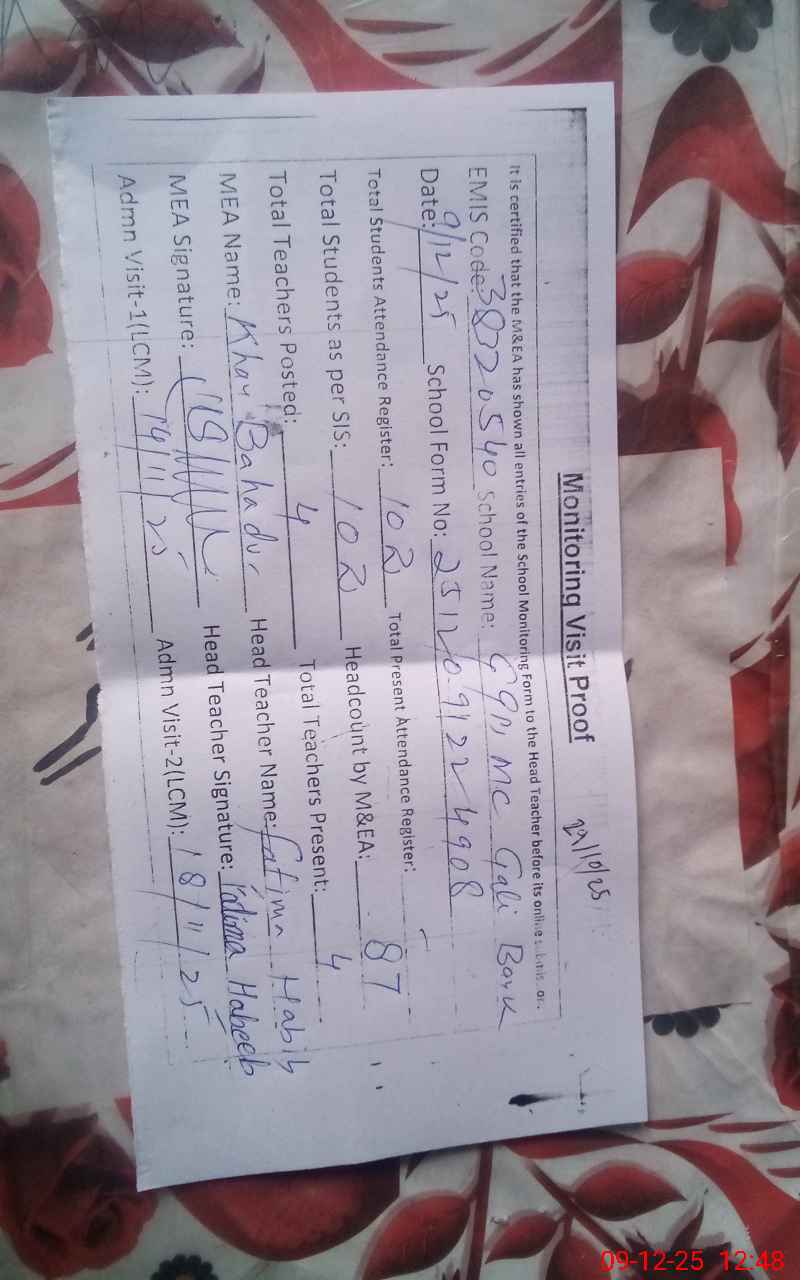 Monitoring Visit Proof 22/10/25
It is certified that the M&EA has shown all entries of the School Monitoring Form to the Head Teacher before its online
EMIS Code: 38320540 School Name: MC Gali
Date: 9/12/25 School Form No: 2512091224908
Total Students Attendance Register: 102 Total Present Attendance Register:
Total Students as per SIS: 102 Headcount by M&EA: 87
Total Teachers Posted: 4 Total Teachers Present: 4
MEA Name: Khan Bahadur Head Teacher Name: Fatima Habib
MEA Signature: Head Teacher Signature: Fatima Habeeb
Admn Visit-1(LCM): 14/11/25 Admn Visit-2(LCM): 18/11/25
09-12-25 12:48